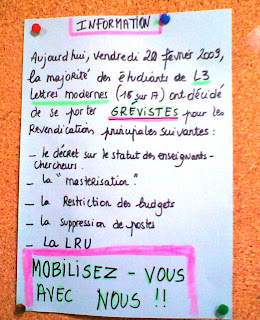 INFORMATION
Aujourd'hui, vendredi 20 février 2009,
la majorité des étudiants de L3
Lettres modernes (16 sur 17) ont décidé
de se porter GRÉVISTES pour les
Revendications principales suivantes :
_ le décret sur le statut des enseignants-
chercheurs.
_ la "masterisation".
_ la Restriction des budgets
_ la suppression de postes
_ La LRU
MOBILISEZ - VOUS
AVEC NOUS !!